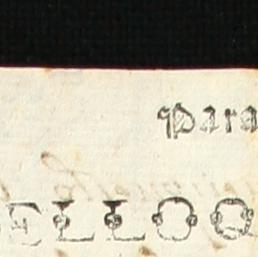 Para
ELLOQ